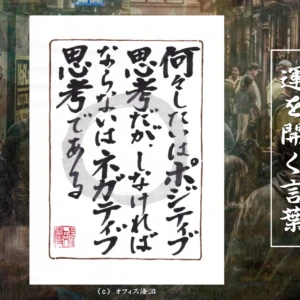 何々したいはポジティブ
思考だが、しなければ
ならないはネガティブ
思考である
運を開く言葉
(c) オフィス海沼